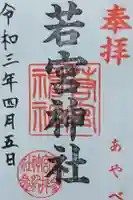 奉拝
あやべ
若宮神社
令和三年四月五日